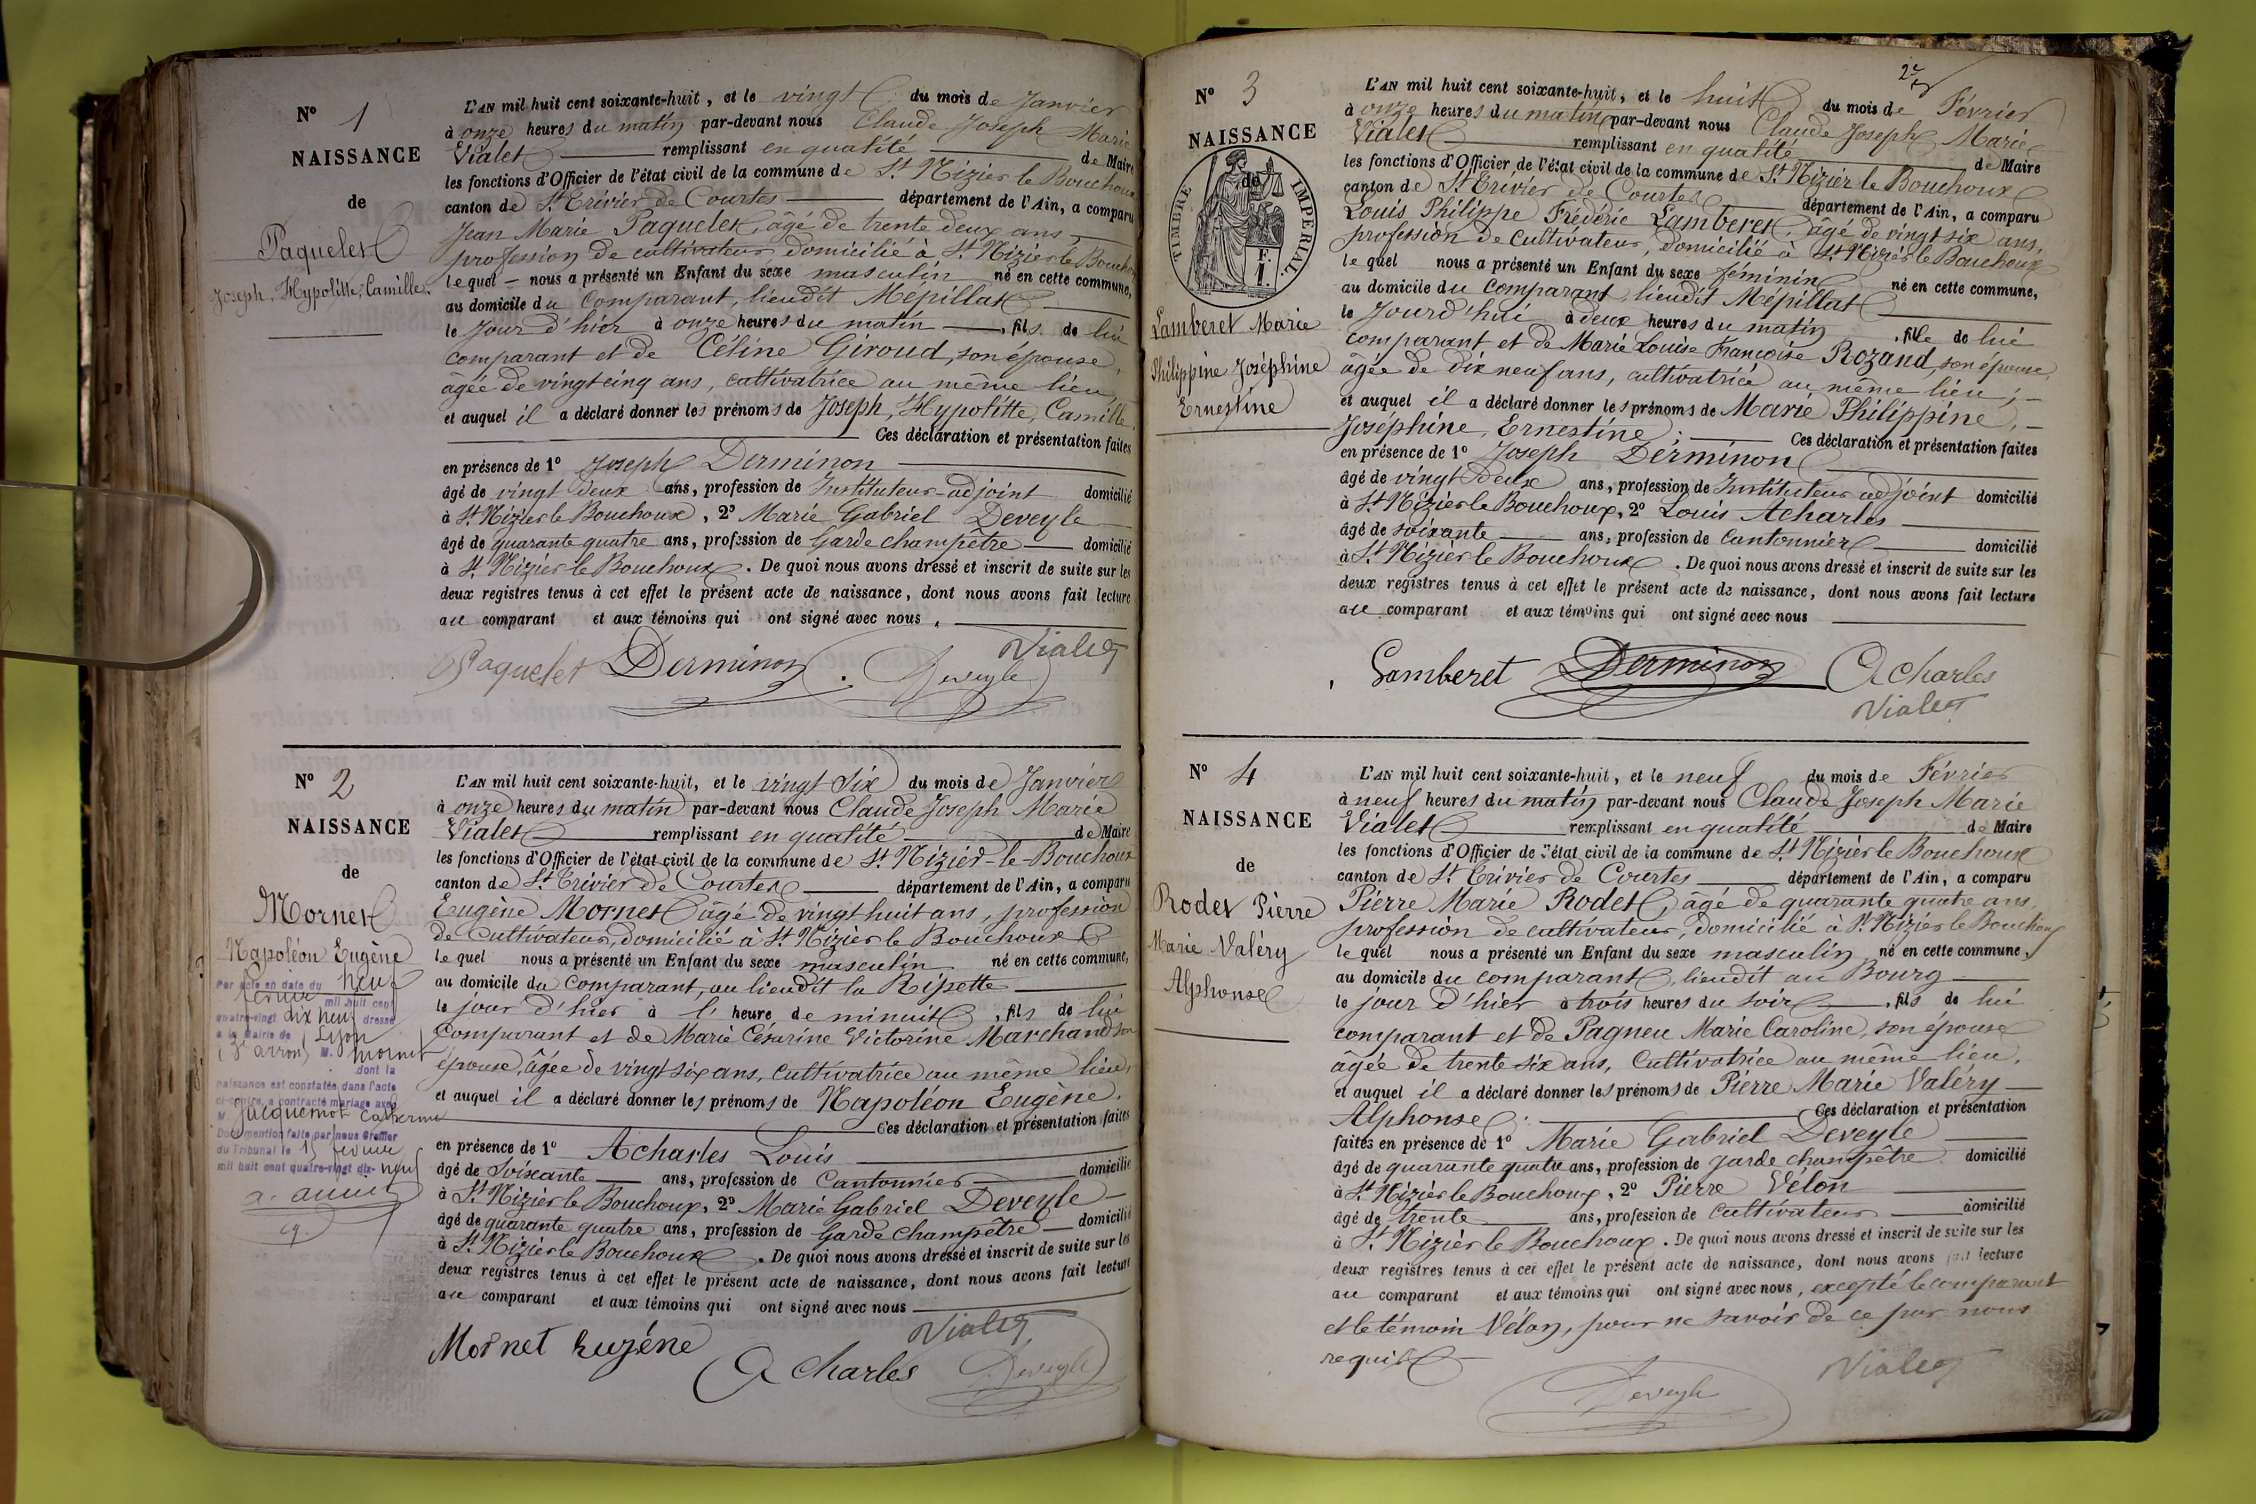 N° 1
NAISSANCE
de
Paquelet
Joseph, Hypolitte, Camille.
L'AN mil huit cent soixante-huit, et le vingt du mois de Janvier
à onze heures du matin par-devant nous Claude Joseph Marie
Vialet remplissant en qualité de Maire
les fonctions d'Officier de l'état civil de la commune de St Nizier le Bouchoux
canton de St Trivier de Courtes département de l'Ain, a comparu
Jean Marie Paquelet, âgé de trente deux ans
profession de cultivateur domicilié à St Nizier le Bouchoux
lequel nous a présenté un Enfant du sexe masculin né en cette commune,
au domicile du comparant, lieudit Mépillat
le jour d'hier à onze heures du matin, fils de lui
comparant et de Céline Giroud, son épouse,
âgée de vingt cinq ans, cultivatrice au même lieu,
et auquel il a déclaré donner les prénoms de Joseph, Hypolitte, Camille,
Ces déclaration et présentation faites
en présence de 1° Joseph Derminon
âgé de vingt deux ans, profession de Instituteur-adjoint domicilié
à St Nizier le Bouchoux, 2° Marie Gabriel Deveyle
âgé de quarante quatre ans, profession de Garde champêtre domicilié
à St Nizier le Bouchoux. De quoi nous avons dressé et inscrit de suite sur les
deux registres tenus à cet effet le présent acte de naissance, dont nous avons fait lecture
au comparant et aux témoins qui ont signé avec nous,
Paquelet Derminon Deveyle Vialet
N° 2
NAISSANCE
de
Mornet
Napoléon Eugène
Par acte en date du neuf
février mil huit cent
quatre-vingt dix neuf dressé
à la Mairie de Lyon
(3e arron) M. Mornet
dont la
naissance est constatée dans l'acte
ci-contre, a contracté mariage avec
M Jacquemot Catherine
Dont mention faite par nous Greffier
du Tribunal le 15 février
mil huit cent quatre-vingt dix-neuf
L'AN mil huit cent soixante-huit, et le vingt six du mois de Janvier
à onze heures du matin par-devant nous Claude Joseph Marie
Vialet remplissant en qualité de Maire
les fonctions d'Officier de l'état civil de la commune de St Nizier-le-Bouchoux
canton de St Trivier de Courtes département de l'Ain, a comparu
Eugène Mornet âgé de vingt huit ans, profession
de cultivateur, domicilié à St Nizier le Bouchoux
lequel nous a présenté un Enfant du sexe masculin né en cette commune,
au domicile du comparant, au lieudit la Ripette
le jour d'hier à l' heure de minuit, fils de lui
comparant et de Marie Césarine Victorine Marchand son
épouse, âgée de vingt six ans, cultivatrice au même lieu,
et auquel il a déclaré donner les prénoms de Napoléon Eugène.
Ces déclaration et présentation faites
en présence de 1° Acharles Louis
âgé de soixante ans, profession de Cantonnier domicilié
à St Nizier le Bouchoux, 2° Marie Gabriel Deveyle
âgé de quarante quatre ans, profession de Garde champêtre domicilié
à St Nizier le Bouchoux. De quoi nous avons dressé et inscrit de suite sur les
deux registres tenus à cet effet le présent acte de naissance, dont nous avons fait lecture
au comparant et aux témoins qui ont signé avec nous
Mornet Eugéne Acharles Vialet Deveyle
2e
N° 3
NAISSANCE
de
TIMBRE IMPERIAL.
F.
1.
Lamberet Marie
Philippine Joséphine
Ernestine
L'AN mil huit cent soixante-huit, et le huit du mois de Février
à onze heures du matin par-devant nous Claude Joseph Marie
Vialet remplissant en qualité de Maire
les fonctions d'Officier de l'état civil de la commune de St Nizier le Bouchoux
canton de St Trivier de Courtes département de l'Ain, a comparu
Louis Philippe Frédéric Lamberet, âgé de vingt six ans,
profession de Cultivateur, domicilié à St Nizier le Bouchoux
lequel nous a présenté un Enfant du sexe féminin né en cette commune,
au domicile du comparant lieudit Mépillat
le jourd'hui à deux heures du matin, fille de lui
comparant et de Marie Louise Françoise Rozand, son épouse
âgée de dix neuf ans, cultivatrice au même lieu;
et auquel il a déclaré donner les prénoms de Marie Philippine,
Joséphine, Ernestine; Ces déclaration et présentation faites
en présence de 1° Joseph Derminon
âgé de vingt deux ans, profession de Instituteur adjoint domicilié
à St Nizier le Bouchoux, 2° Louis Acharles
âgé de soixante ans, profession de cantonnier domicilié
à St Nizier le Bouchoux. De quoi nous avons dressé et inscrit de suite sur les
deux registres tenus à cet effet le présent acte de naissance, dont nous avons fait lecture
au comparant et aux témoins qui ont signé avec nous
Lamberet Derminon Acharles
Vialet
N° 4
NAISSANCE
de
Rodet Pierre
Marie Valéry
Alphonse
L'AN mil huit cent soixante-huit, et le neuf du mois de Février
à neuf heures du matin par-devant nous Claude Joseph Marie
Vialet remplissant en qualité de Maire
les fonctions d'Officier de l'état civil de la commune de St Nizier le Bouchoux
canton de St Trivier de Courtes département de l'Ain, a comparu
Pierre Marie Rodet, âgé de quarante quatre ans,
profession de cultivateur, domicilié à St Nizier le Bouchoux
lequel nous a présenté un Enfant du sexe masculin né en cette commune,
au domicile du comparant, lieudit au Bourg
le jour d'hier à trois heures du soir, fils de lui
comparant et de Pagneu Marie Caroline, son épouse
âgée de trente six ans, Cultivatrice au même lieu,
et auquel il a déclaré donner les prénoms de Pierre Marie Valéry
Alphonse. Ces déclaration et présentation
faites en présence de 1° Marie Gabriel Deveyle
âgé de quarante quatre ans, profession de garde champêtre domicilié
à St Nizier le Bouchoux, 2° Pierre Vélon
âgé de trente ans, profession de cultivateur domicilié
à St Nizier le Bouchoux. De quoi nous avons dressé et inscrit de suite sur les
deux registres tenus à cet effet le présent acte de naissance, dont nous avons fait lecture
au comparant et aux témoins qui ont signé avec nous, excepté le comparant
et le témoin Vélon, pour ne savoir de ce par nous
requis
Deveyle Vialet